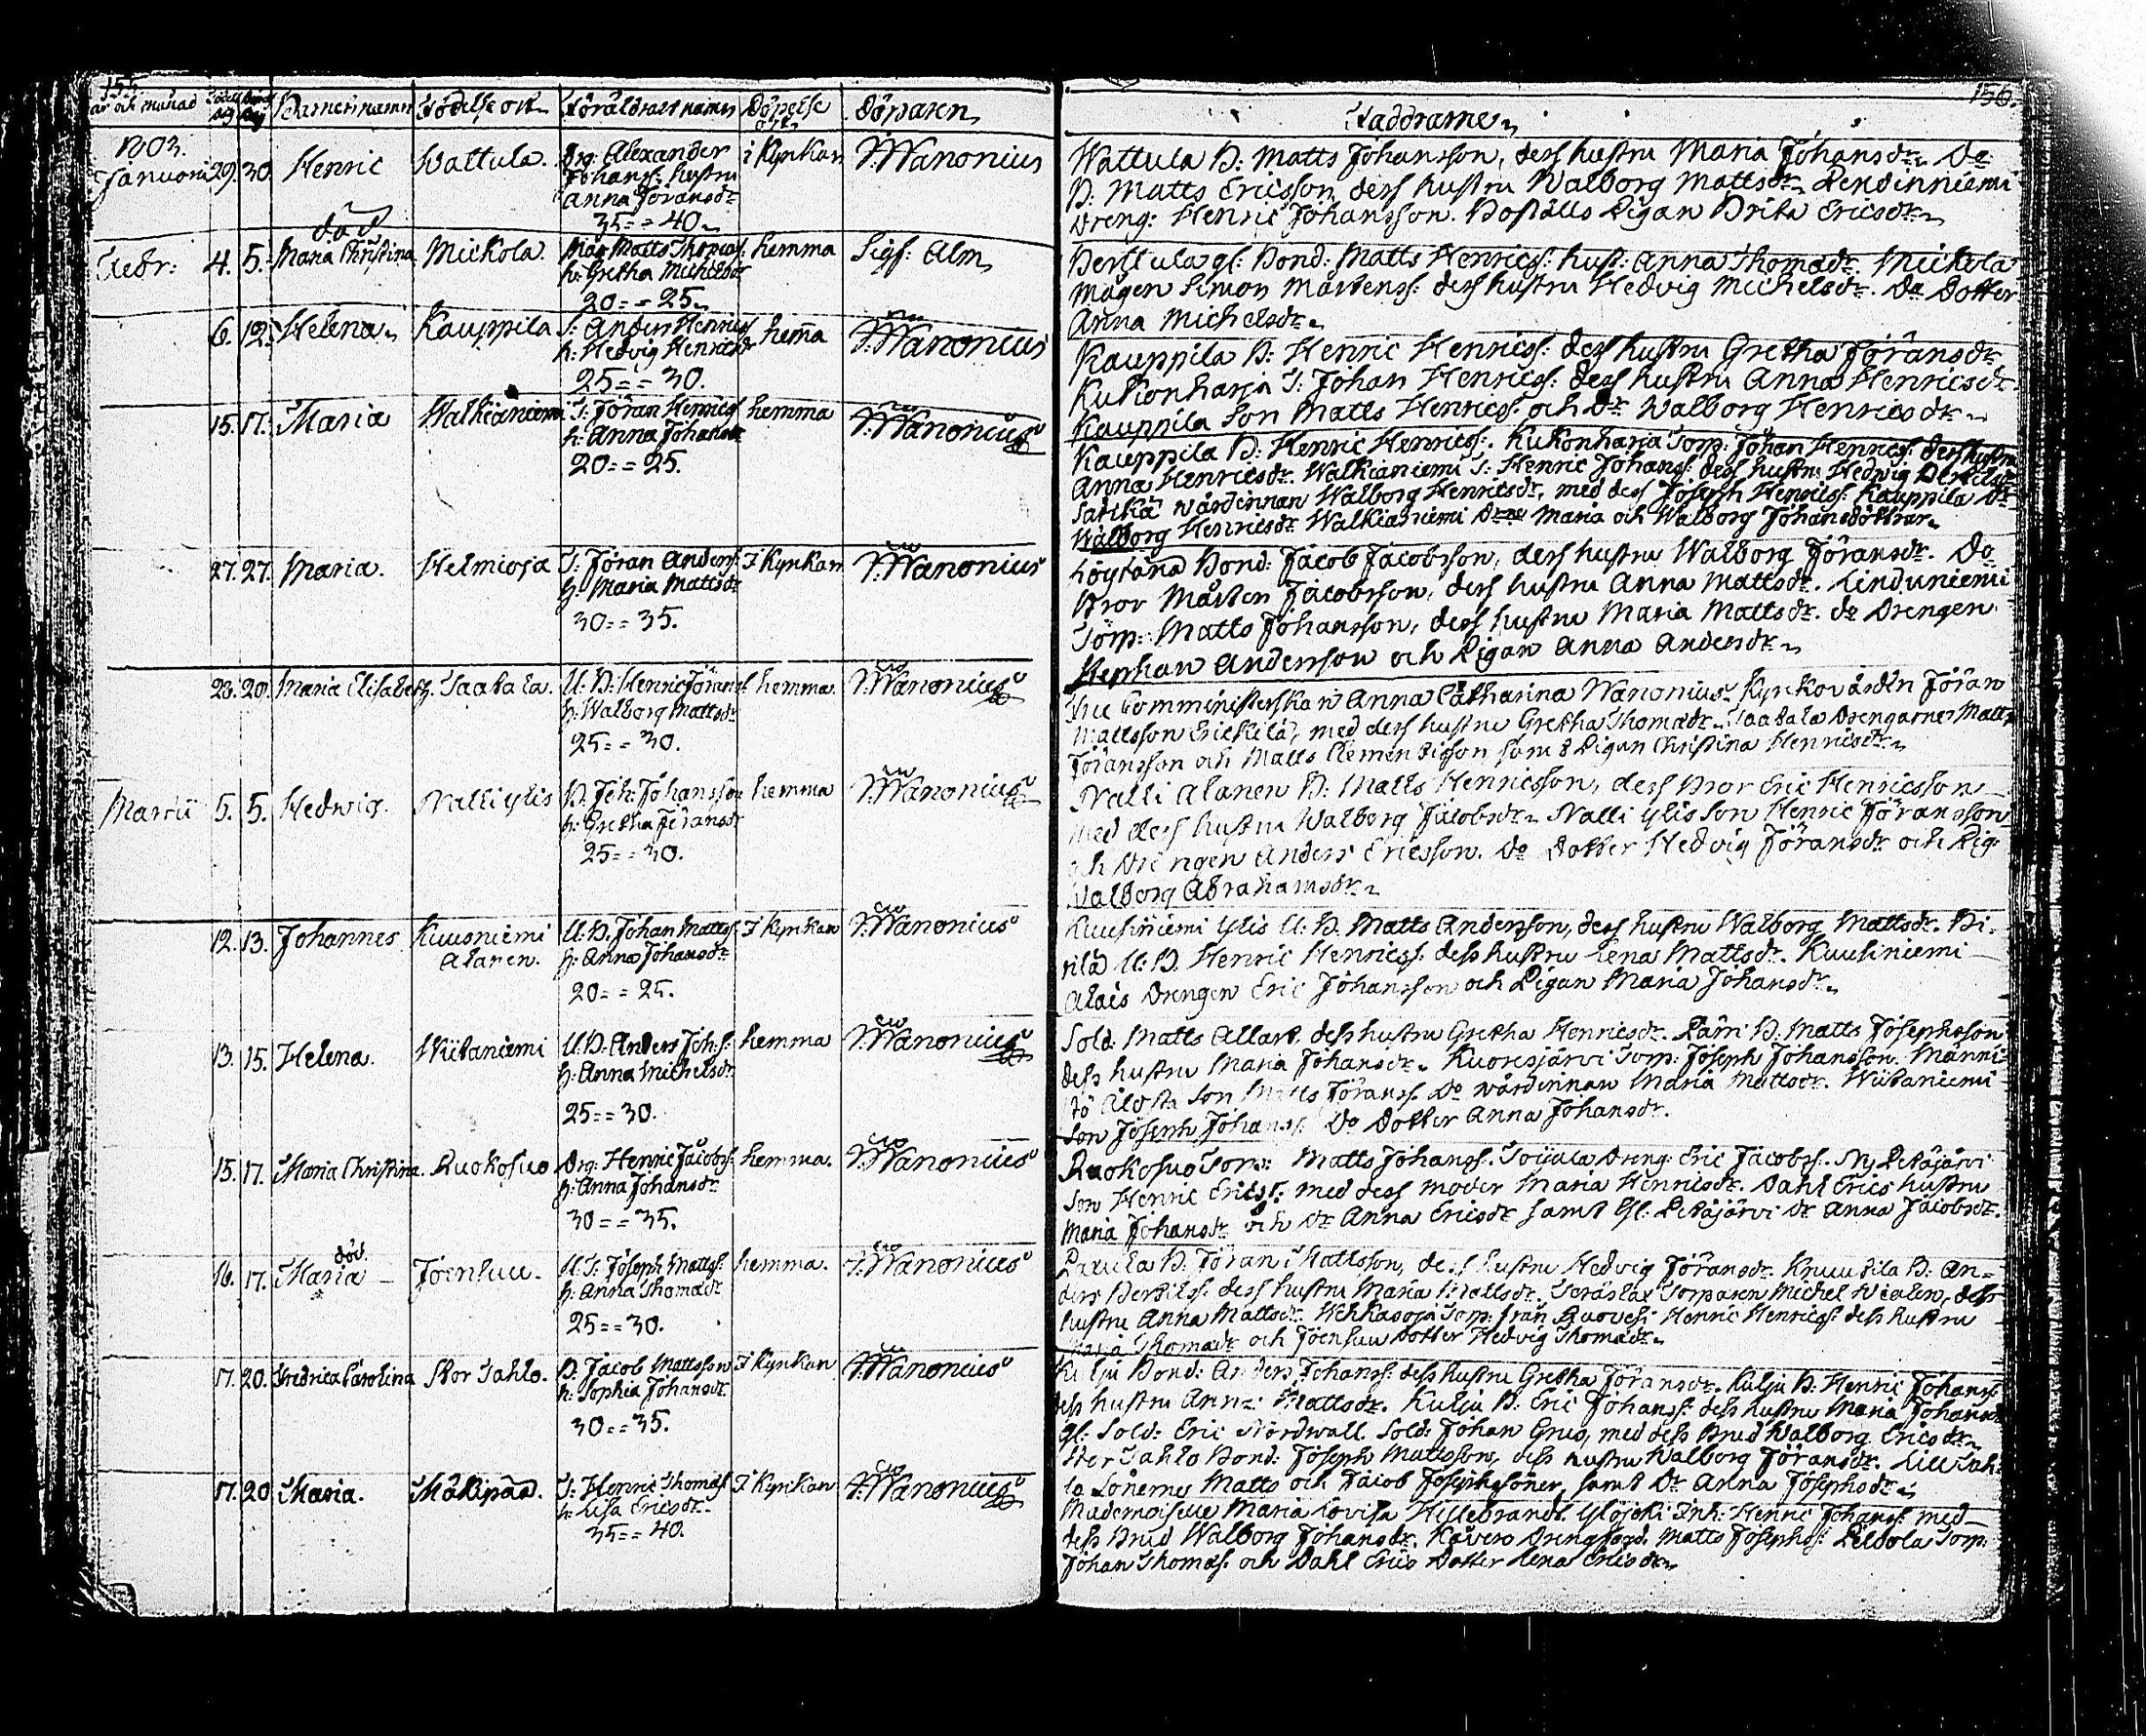 155.
år och månad Födels dag Döpels dag Barnets namn Födelse ort Föräldrars namn Döpelse ort Döparen
1803.
Januari 29. 30. Henric Wattula. Drg: Alexander i Kyrkan J: Wanonius
Johanss: hustru
Anna Jöransdr
35 = = 40.
död
Febr: 4. 5. Maria Christina Mickola. Måg Matts Thomass: hemma Sigf: Alm
h: Gretha Michelsdr
20 = = 25.
6. 12. Helena Kauppila T: Anders Henricss hema J: Wanonius
h: Hedvig Henricsdr
25 = = 30.
15. 17. Maria Walkianiemi T: Jöran Henricss hemma J: Wanonius
h: Anna Johansdr
20 = = 25.
27. 27. Maria. Helmioja T: Jöran Anderss: I Kyrkan J: Wanonius
h: Maria Mattsdr
30 = = 35.
20. Maria Elisabeth. Taatala. U: B: Henric Jöranss: hemma. J: Wanonius
h: Walborg Mattsdr
25 = = 30.
Martii 5. 5. Hedwig. Nalli ylis B: Joh: Johansson hemma J: Wanonius
h: Gretha Jöransdr
25 = = 30.
12. 13. Johannes Kuusniemi U: B: Johan Mattss: I Kyrkan J: Wanonius
Alanen. h: Anna Johansdr
20 = = 25.
13. 15. Helena. Wiitaniemi U: B: Anders Joh:s: hemma J: Wanonius
h: Anna Michelsdr
25 = = 30.
15. 17. Maria Christina. Ruokosuo Drg: Henric Jacobss: hemma. J: Wanonius
h: Anna Johansdr
30 = = 35.
död.
16. 17. Maria Joensuu. U: T: Joseph Mattss: hemma. J: Wanonius
h: Anna Thomasdr
25 = = 30.
17. 20. Fredrica Carolina Stor Tahlo. B: Jacob Mattsson I Kyrkan J: Wanonius
h: Sophia Johansdr
30 = = 35.
17. 20 Maria. Mäkipää. T: Henric Thomass: I Kyrkan J: Wanonius
h: Lisa Ericsdr
35 = = 40.
156.
Faddrarne
Wattula B: Matts Johansson, dess hustru Maria Johansdr. Do
B: Matts Ericsson dess hustru Walborg Mattsdr. Lendinniemi
Dreng: Henric Johansson. Boställs Pigan Brita Ericsdr
Perttula gl: Bond: Matts Henricss: hust: Anna Thomadr. Mickola
Mågen Simon Mårtenss: dess hustru Hedvig Michelsdr. Do Dotter
Anna Michelsdr
Kauppila B: Henric Henricss: dess hustru Gretha Jöransdr
Kukonharja T: Johan Henricss: dess hustru Anna Henricsdr
Kauppila Son Matts Henricss: och Dr Walborg Henricsdr
Kauppila B: Henric Henricss: Kukonharja Torp: Johan Henricss: dess hustru
Anna Henricsdr. Walkianiemi T: Henric Johanss: dess hustru Hedwig
wärdinnan Walborg Henricsdr, med dess Joseph Henricss: Kauppila Dr
Walborg Henricsdr Walkianiemi Maria och Walborg Johansdöttrar
Löytänä Bond: Jacob Jacobsson, dess hustru Walborg Jöransdr. Do
Bror Mårten Jacobsson, dess hustru Anna Mattsdr. Linduniemi
Torp: Matts Johansson, dess hustru Maria Mattsdr. Do Drengen
Stephan Andersson och Pigan Anna Andersdr
Fru Comministerskan Anna Catharina Wanonius. Kyrkovärden Jöran
Mattsson Erickilä, med dess hustru Gretha Thomadr. Taatala Drengarne Matts
Jöransson och Matts Clementsson samt Pigan Christina Henricsdr
Nalli Alanen B: Matts Henricsson, dess Bror Eric Henricsson
med dess hustru Walborg Jacobsdr. Nalli ylis Son Henric Jöransson
och Drengen Anders Ericsson. Do Dotter Hedvig Jöransdr och Pig:
Walborg Abrahamsdr
Kuusiniemi ylis U: B: Matts Andersson, dess hustru Walborg Mattsdr. Pi-
rilä U: B: Henric Henricss: dess hustru Lena Mattsdr. Kuusiniemi
Alais Drengen Eric Johansson och Pigan Maria Johansdr
Sold: Matts Allart dess hustru Gretha Henricsdr. B: Matts Josephsson
dess hustru Maria Johansdr. Kuoresjärvi Torp: Joseph Johansson. Männi-
stö Alosta Son Matts Jöranss: Do wärdinnan Maria Mattsdr. Wiitaniemi
Son Joseph Johanss: Do Dotter Anna Johansdr.
Ruokosuo Torp: Matts Johanss: Dreng: Eric Jacobss: Ny Petäjärvi
Son Henric Ericss: med dess moder Maria Henricsdr. Dahl Erics hustru
Maria Johansdr och Dr Anna Ericsdr samt Gl: Petäjärvi Dr Anna Jacobsdr.
B: Jöran Mattsson, dess hustru Hedvig Jöransdr. Knuutila B: An-
ders dess hustru Maria Mattsdr. Torparen Michel dess
hustru Anna Mattsdr. Torp: från Ruovesi Henric Henricss: dess hustru
Maria Thomadr och Joensuu Dotter Hedvig Thomadr
Kulju Bond: Anders Johanss: dess hustru Gretha Jöransdr. Kulju B: Henric Johanss:
dess hustru Anna Mattsdr. Kulju B: Eric Johanss: dess hustru Maria Johansdr
gl: Sold: Eric Nordwall. Sold: Johan Grus, med dess Brud Walborg Ericsdr
Stor Tahlo Bond: Joseph Mattsson, dess hustru Walborg Jöransdr. Lill Tah-
lo Sönerne Matts och Jacob Josephssöner, samt Dr Anna Josephsdr
Mademoiselle Maria Lovisa Hillebrandt. Ylöjoki Inh: Henric Johanss: med
dess Brud Walborg Johansdr. Dreng Matts Josephss: Torp:
Johan Thomass: och Dahl Erics Dotter Lena Ericsdr